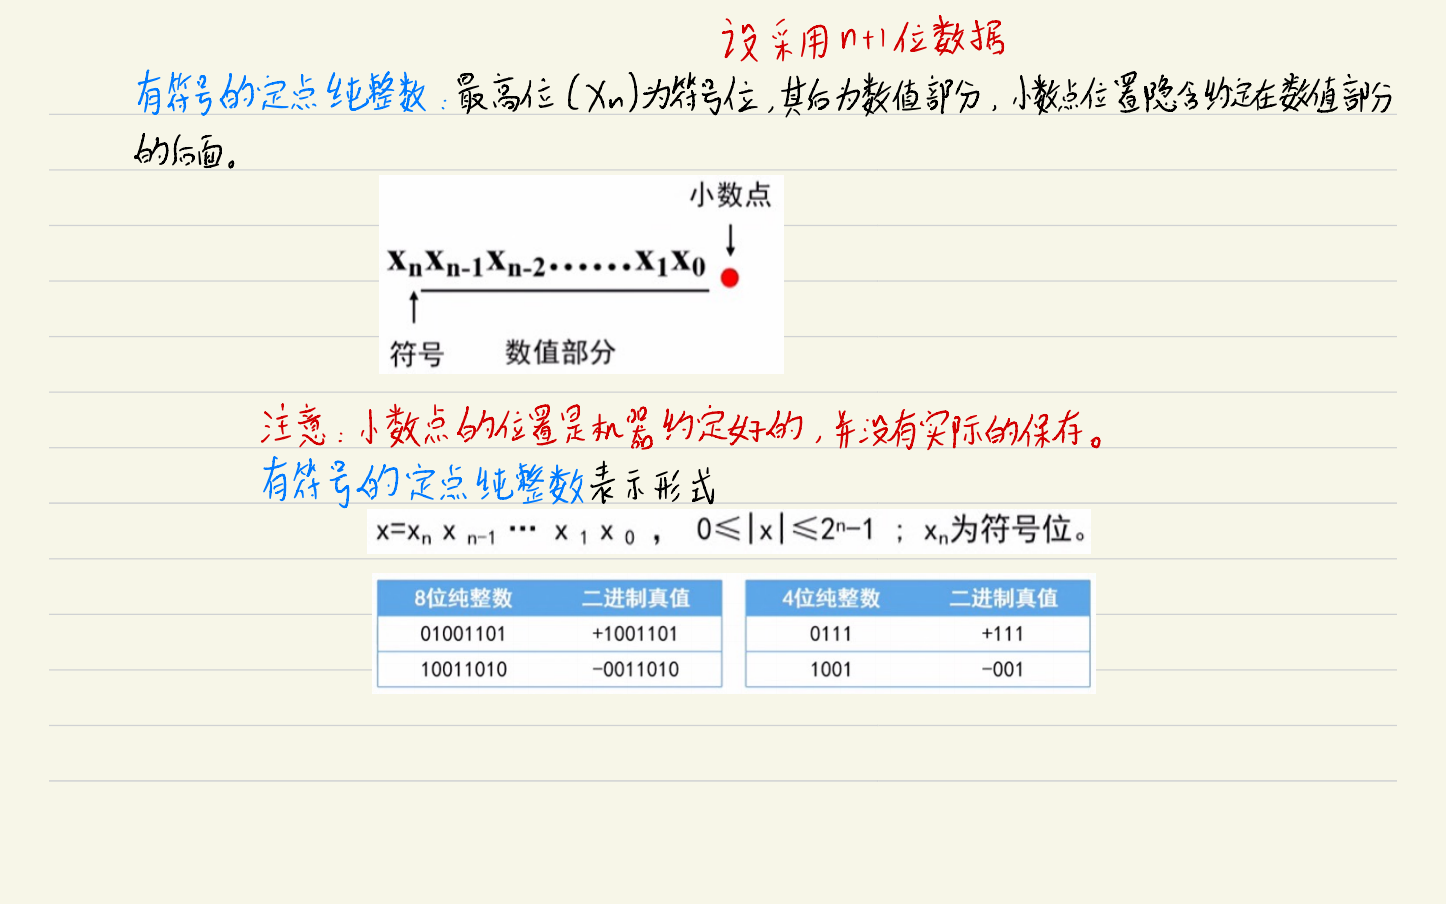 设采用n+1位数据
有符号的定点纯整数:最高位(Xn)为符号位,其后为数值部分,小数点位置隐含约定在数值部分
的后面。
小数点
xnxn-1xn-2······x1x0
符号 数值部分
注意:小数点的位置是机器约定好的,并没有实际的保存。
有符号的定点纯整数表示形式
x=xn x n-1 ··· x 1 x 0 , 0≤|x|≤2ⁿ-1 ; xn为符号位。
8位纯整数 二进制真值 4位纯整数 二进制真值
01001101 +1001101 0111 +111
10011010 -0011010 1001 -001